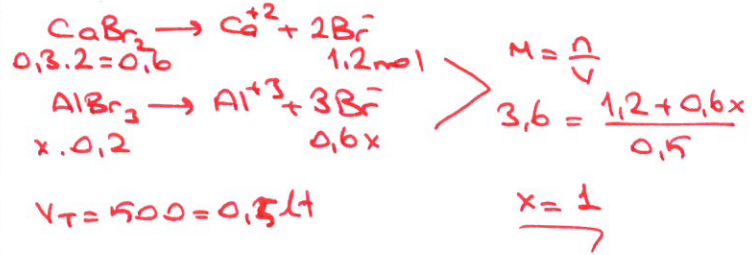 CaBr₂ → Ca⁺² + 2Br⁻
0,3.2=0,6 1,2mol
AlBr₃ → Al⁺³ + 3Br⁻
x.0,2 0,6x
V_T = 500 = 0,5 lt
M = n/V
3,6 = (1,2 + 0,6x)/0,5
x = 1